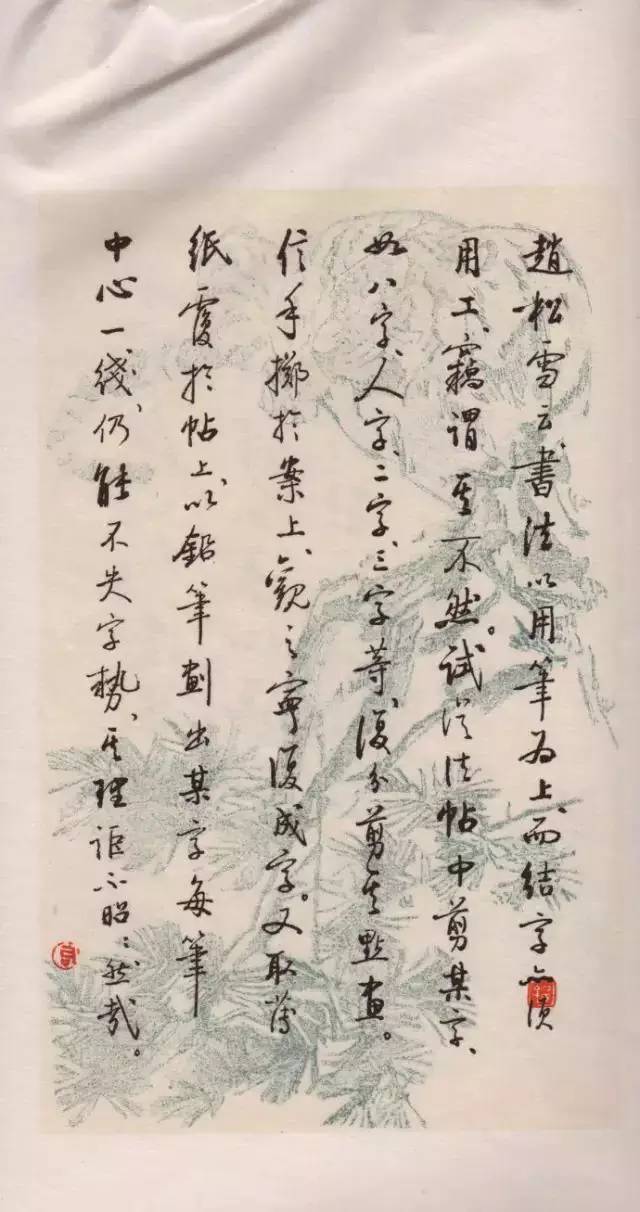 趙松雪云、書法以用筆爲上、而結字亦須
用工、竊謂其不然。試從法帖中剪某字、
如八字、人字、二字、三字等、復分剪其點畫。
信手擲於案上、觀之寧復成字。又取薄
紙覆於帖上、以鉛筆劃出某字每筆
中心一綫、仍能不失字勢、其理詎不昭〻然哉。